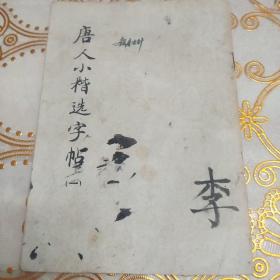 唐人小楷选字帖
李